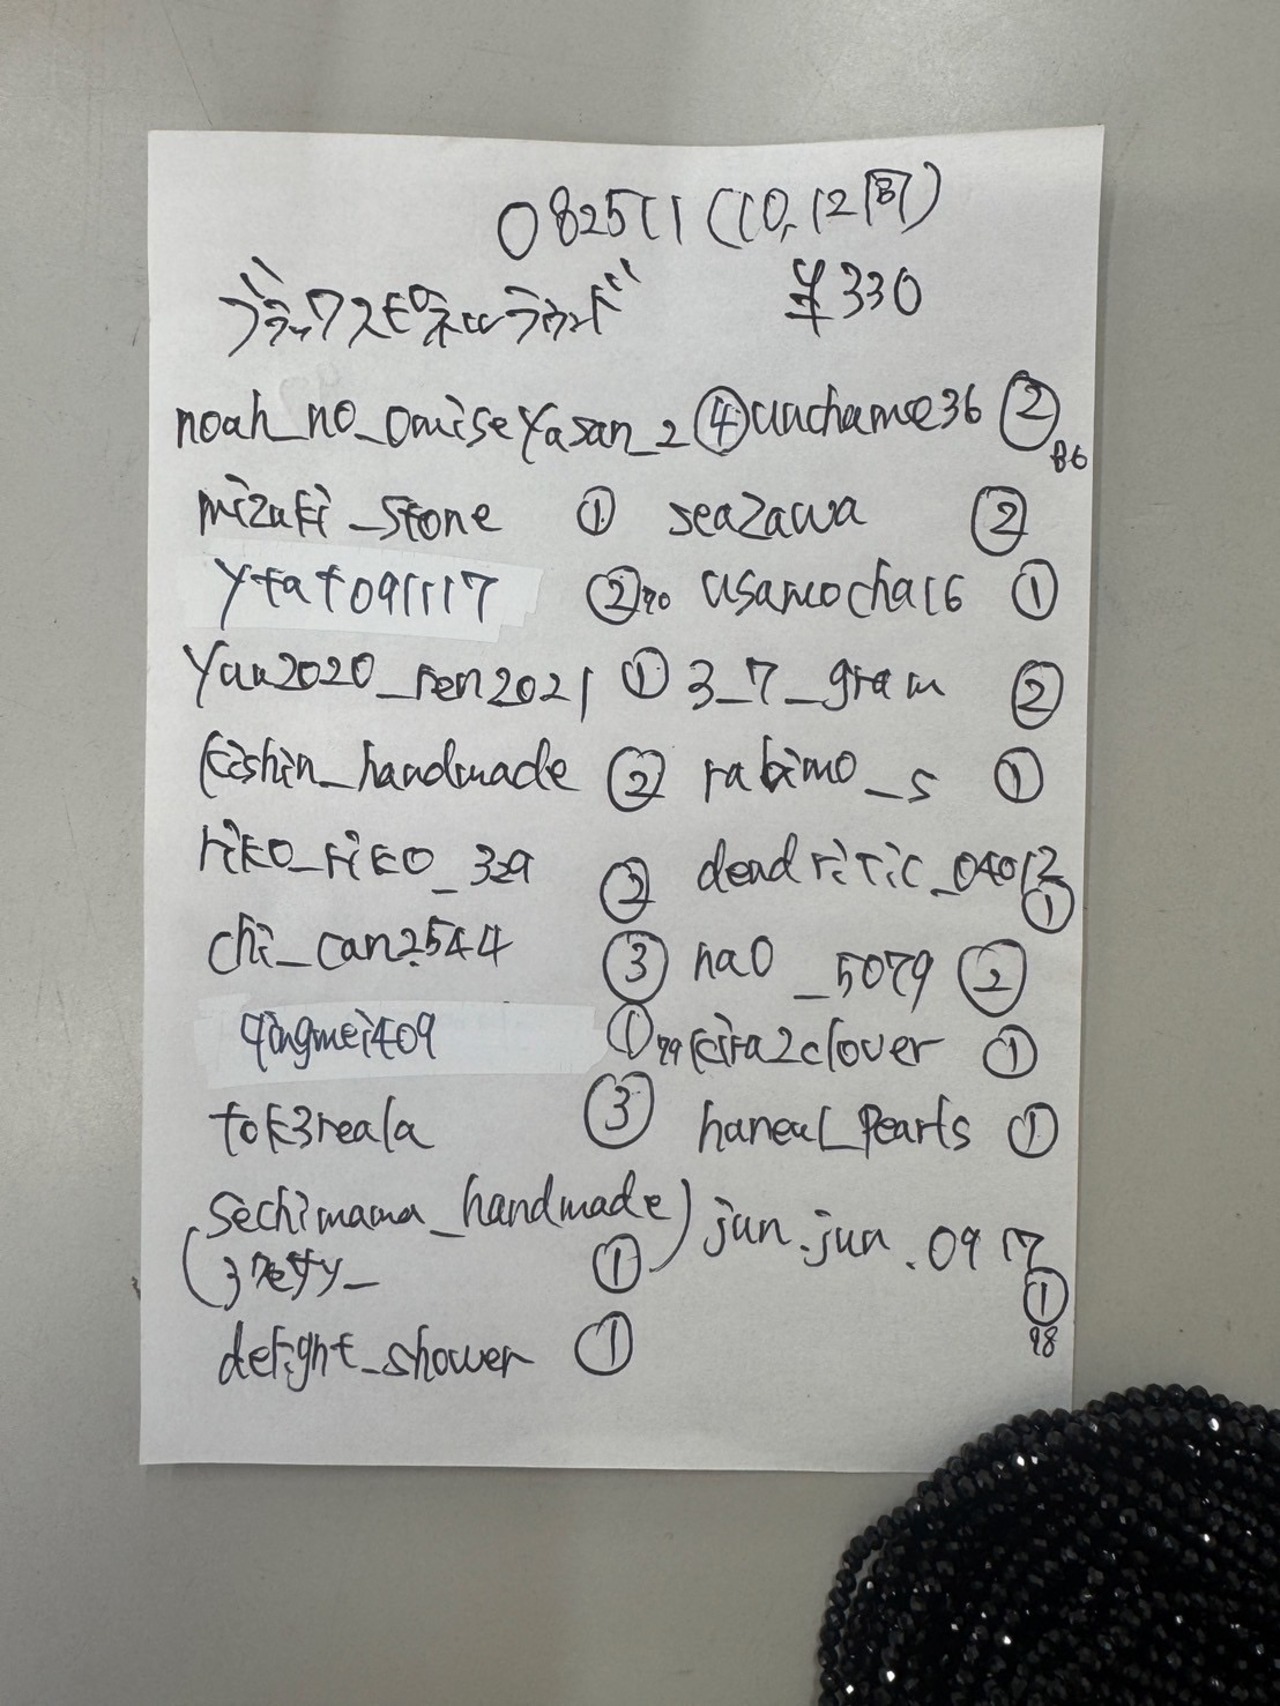 082511 (10,12時)
ブラックスピネルラウンド ¥330
noah_no_omiseyasan_2 ④
mizuki_stone ①
ytat091117 ② 70
yuu2020_ren2021 ①
kishin_handmade ②
riko_riko_329 ②
chi_can2544 ③
qingmei409 ① 79
tok3reala ③
(sechimama_handmade)
①
delight_shower ①
unchamoe36 ② 86
seazawa ②
usamocha16 ①
3_7_gram ②
rabimo_s ①
dendritic_04012 ①
nao_5079 ②
kira2clover ①
haneul_pearls ①
jun.jun.0917 ①
98